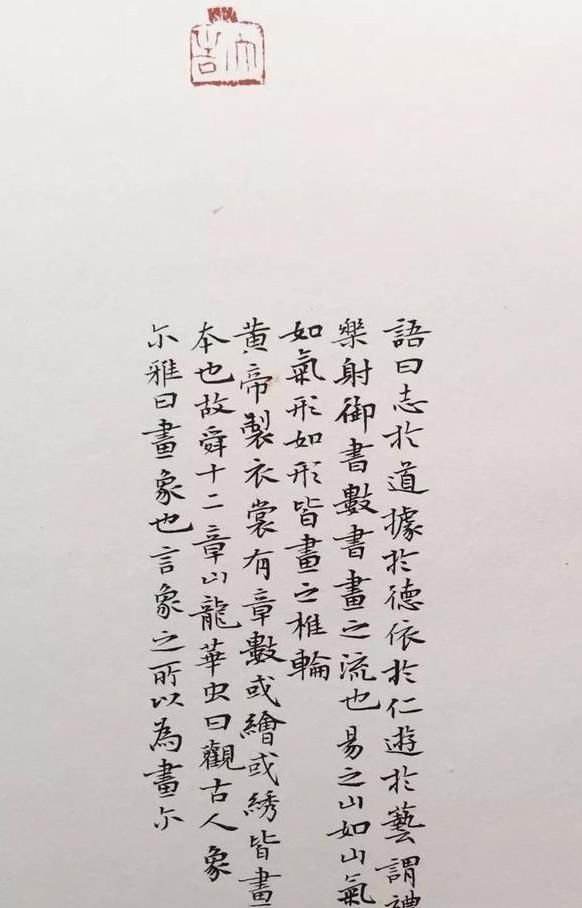 語曰志於道據於德依於仁遊於藝謂禮
樂射御書數書畫之流也易之山如山氣
如氣形如形皆畫之椎輪
黃帝製衣裳有章數或繪或綉皆畫
本也故舜十二章山龍華虫曰觀古人象
尒雅曰畫象也言象之所以為畫尒